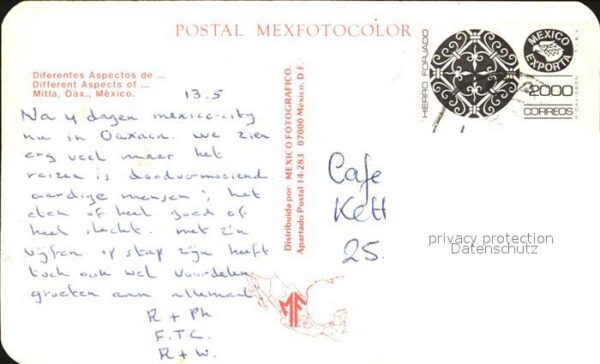 POSTAL MEXFOTOCOLOR
Diferentes Aspectos de ...
Different Aspects of ...
Mitla, Oax., México.
13.5
Na 4 dagen mexico-city
nu in Oaxaca. We zien
erg veel maar het
reizen is doodvermoeiend
aardige mensen; het
eten of heel goed of
heel slecht. met z'n
vijfen op stap zijn heeft
toch ook wel voordelen
groeten aan allemaal
R + Ph
F.T.C.
R + W.
Distribuida por MEXICO FOTOGRAFICO.
Apartado Postal 14-283 07000 México, D.F.
MF
Cafe
Kett
25.
HIERRO FORJADO
MEXICO
EXPORTA
2000
CORREOS
privacy protection
Datenschutz